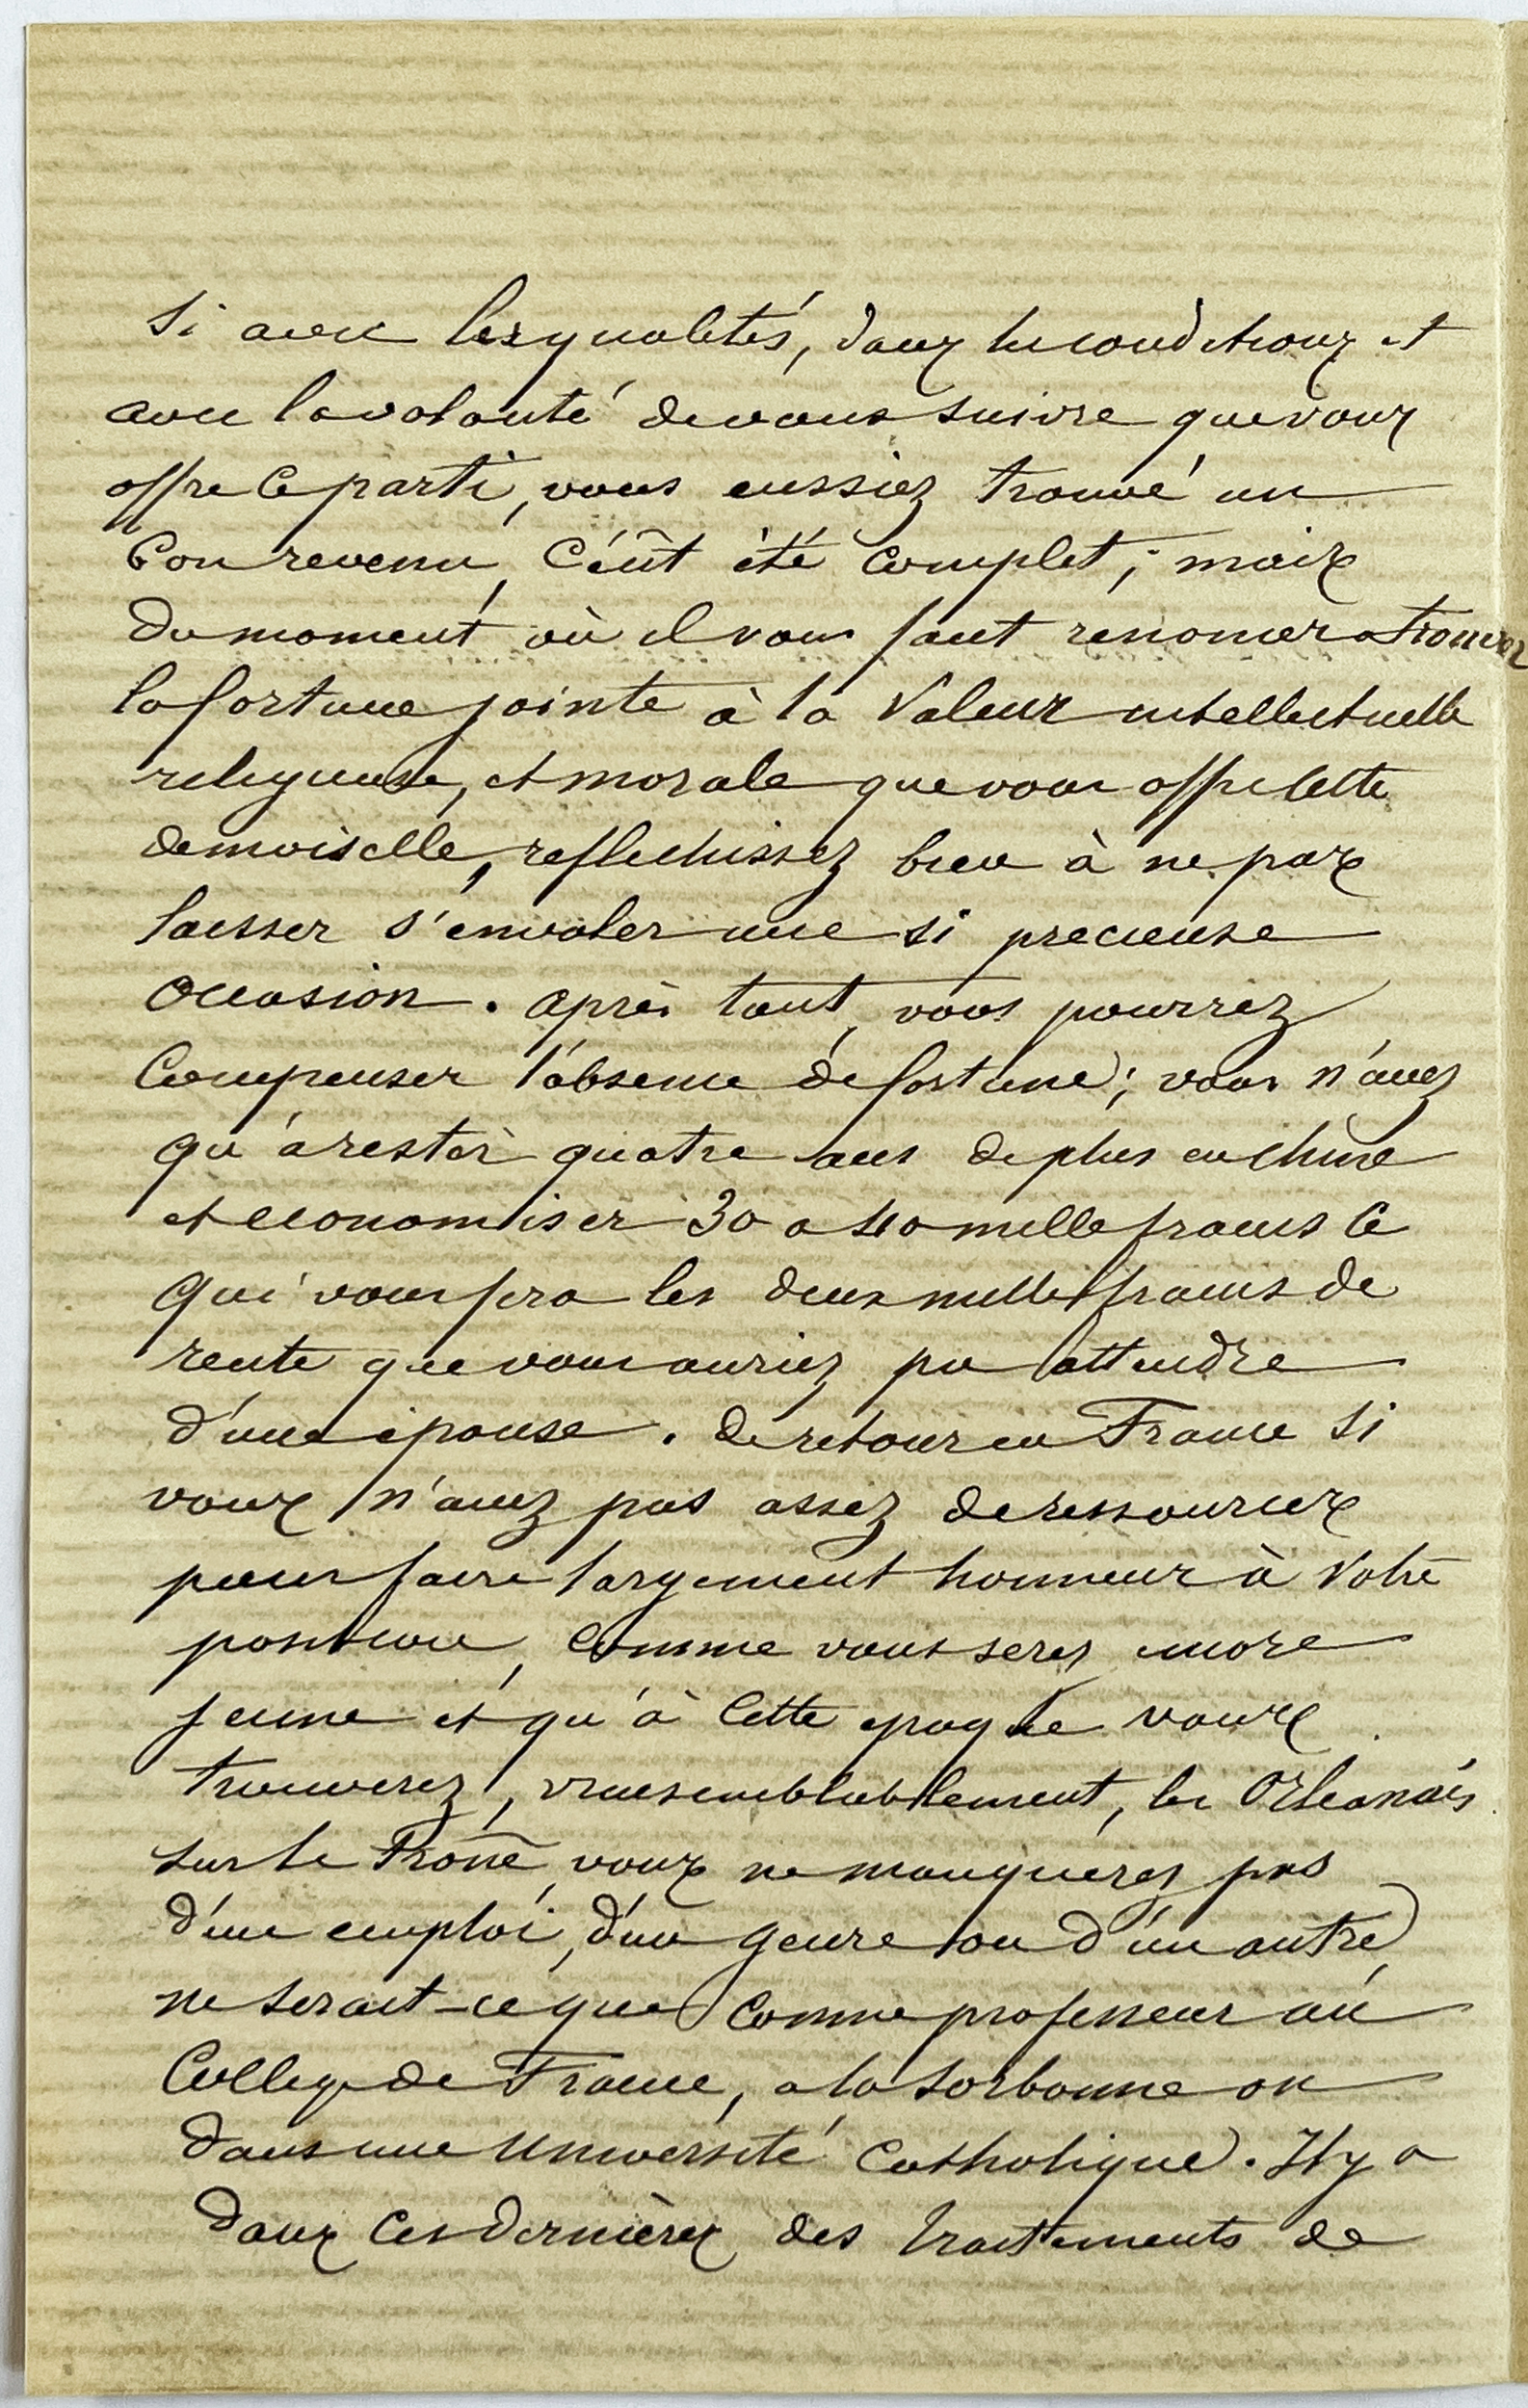 Si avec les qualités, dans les conditions et
avec la volonté de vous suivre que vous
offre ce parti, vous eussiez trouvé un
bon revenu, c'eût été complet ; mais
du moment où il vous faut renoncer a trouver
la fortune jointe à la valeur intellectuelle
religieuse, et morale que vous offre cette
demoiselle, reflechissez bien à ne pas
laisser s'envoler une si precieuse
occasion. après tout, vous pourrez
compenser l'absence de fortune ; vous n'avez
qu'à rester quatre ans de plus en Chine
et economiser 30 a 40 mille francs ce
qui vous fera les deux mille francs de
rente que vous auriez pu attendre
d'une épouse. de retour en France si
vous n'avez pas assez de ressources
pour faire largement honneur à votre
position, comme vous serez encore
jeune et qu'à cette epoque vous
trouverez, vraisemblablement, les Orleanais
sur le Trône, vous ne manquerez pas
d'un emploi, d'un genre ou d'un autre,
ne serait-ce que comme professeur au
College de France, a la Sorbonne ou
dans une Université Catholique. Il y a
dans ces dernières des traitements de